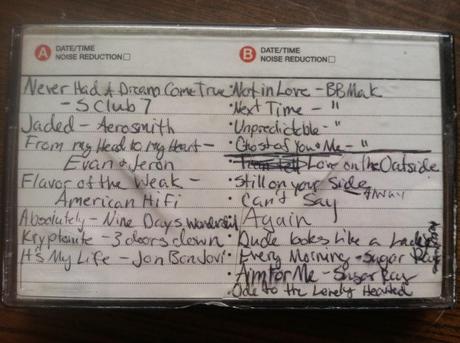 A DATE/TIME
NOISE REDUCTION
Never Had A Dream Come True
- S Club 7
Jaded - Aerosmith
From my Head to My Heart -
Evan & Jeron
Flavor of the Weak -
American Hifi
Absolutely - Nine Days
Kryptonite - 3 doors down
It's My Life - Jon BonJovi
B DATE/TIME
NOISE REDUCTION
• Not in Love - BBMak
• Next Time - "
• Unpredictable - "
• Ghost of You & Me - "
• Love on the Outside
• Still on your side
• Can't Say
Again
• Dude looks like a Lady
• Every Morning - Sugar Ray
• Aim For Me - Sugar Ray
• Ode to the Lonely Hearted